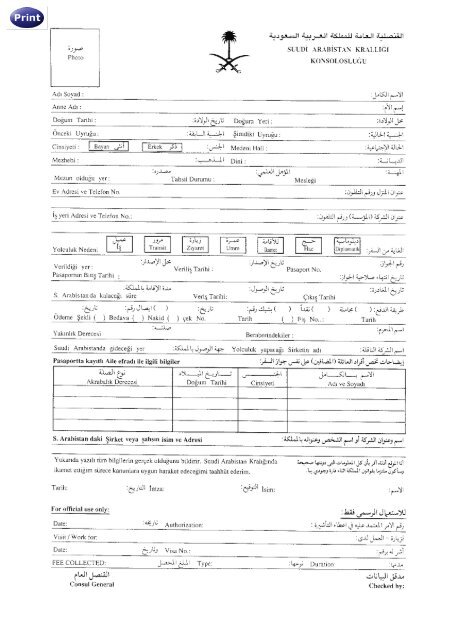 Print
القنصلية العامة للمملكة العربية السعودية
صورة
Photo
SUUDI ARABİSTAN KRALLIĞI
KONSOLOSLUĞU
Adı Soyad : الاسم الكامل:
Anne Adı : إسم الأم:
Doğum Tarihi : تاريخ الولادة: Doğum Yeri : محل الولادة:
Önceki Uyruğu : الجنسية السابقة: Şimdiki Uyruğu : الجنسية الحالية:
Cinsiyeti : Bayan أنثى Erkek ذكر الجنس: Medeni Hali : الحالة الاجتماعية:
Mezhebi : المذهب: Dini : الديانة:
مصدره: المؤهل العلمي: المهنة:
Mezun olduğu yer : Tahsil Durumu : Mesleği
Ev Adresi ve Telefon No. عنوان المنزل ورقم التلفون:
İş yeri Adresi ve Telefon No.: عنوان الشركة (المؤسسة) ورقم التلفون:
عمل مرور زيارة عمرة للاقامة حج دبلوماسية الغاية من السفر:
Yolculuk Nedeni İş Transit Ziyaret Umre İkamet Hac Diplomatik
محل الإصدار: تاريخ الإصدار: رقم الجواز:
Verildiği yer : Veriliş Tarihi : Pasaport No.
Pasaportun Bitiş Tarihi : تاريخ انتهاء صلاحية الجواز:
مدة الإقامة بالمملكة: تاريخ الوصول: تاريخ المغادرة:
S. Arabistanda kalacağı süre Veriş Tarihi: Çıkış Tarihi
تاريخ: ايصال رقم: تاريخ: بشيك رقم: نقداً مجاملة طريقة الدفع:
Ödeme Şekli ( ) Bedava ( ) Nakid ( ) çek No. Tarih ( ) Fiş No.: Tarih
صلته: اسم المحرم:
Yakınlık Derecesi Beraberindekiler :
Suudi Arabistanda gideceği yer جهة الوصول بالمملكة: Yolculuk yapacağı Şirketin adı اسم الشركة الناقلة:
Pasaportta kayıtlı Aile efradı ile ilgili bilgiler إيضاحات تخص أفراد العائلة (المضافين) على نفس جواز السفر:
نوع الصلة تاريخ الميلاد الجنس الاسم بالكامل
Akrabalık Derecesi Doğum Tarihi Cinsiyeti Adı ve Soyadı
S. Arabistan daki Şirket veya şahsın isim ve Adresi اسم وعنوان الشركة أو اسم الشخص وعنوانه بالمملكة:
Yukarıda yazılı tüm bilgilerin gerçek olduğunu bildirir. Suudi Arabistan Krallığında أنا الموقع أدناه أقر بأن كل المعلومات التي دونتها صحيحة
ikamet ettiğim sürece kanunlara uygun hareket edeceğimi taahhüt ederim. وسأكون ملتزما بقوانين المملكة أثناء فترة وجودي بها
Tarih: التاريخ: İmza: التوقيع: İsim: الاسم:
For official use only: للاستعمال الرسمي فقط:
Date: تاريخه: Authorization: رقم الأمر المعتمد عليه في إعطاء التأشيرة:
Visit / Work for: لزيارة - العمل لدى:
Date: وتاريخ Visa No.: أشر له برقم:
FEE COLLECTED: المبلغ المحصل Type: نوعها: Duration مدتها:
القنصل العام مدقق البيانات
Consul General Checked by: